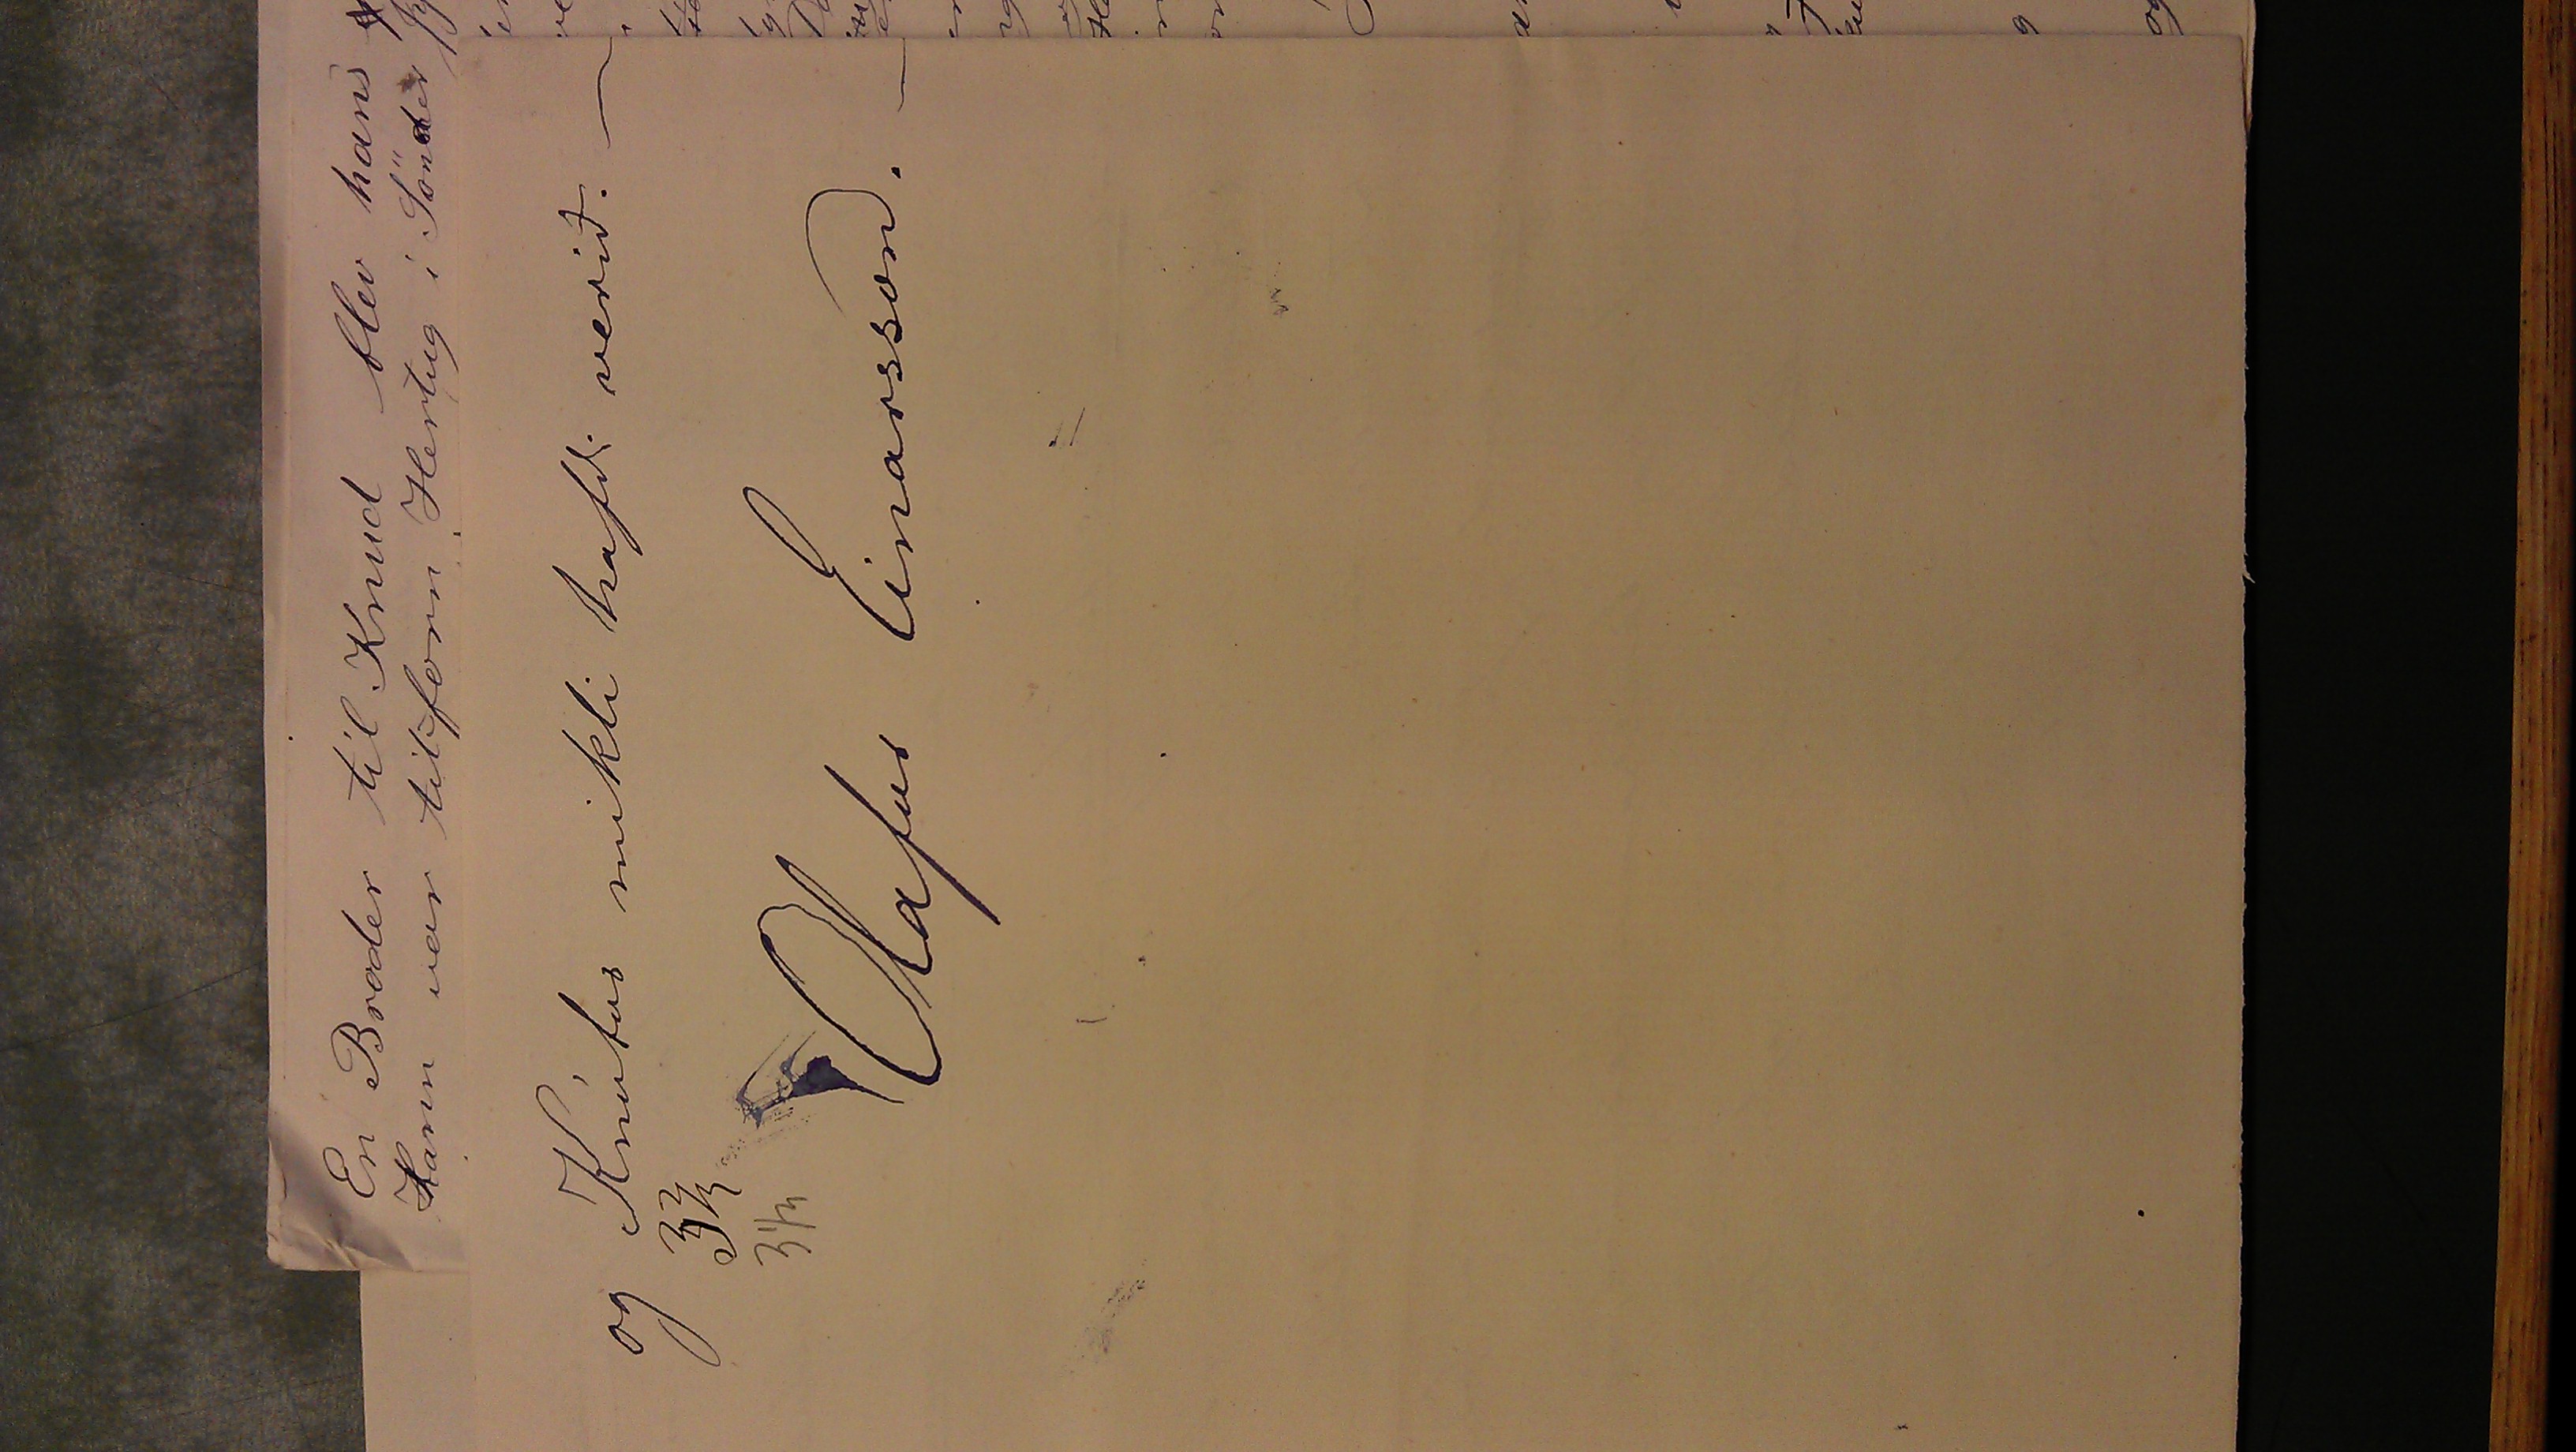 En Broder til Knud blev hans
Hann var tilforn Hertug i Sönder
og Knútur mikli hafði verið. —
3½
3½
Olafur Einarsson. —